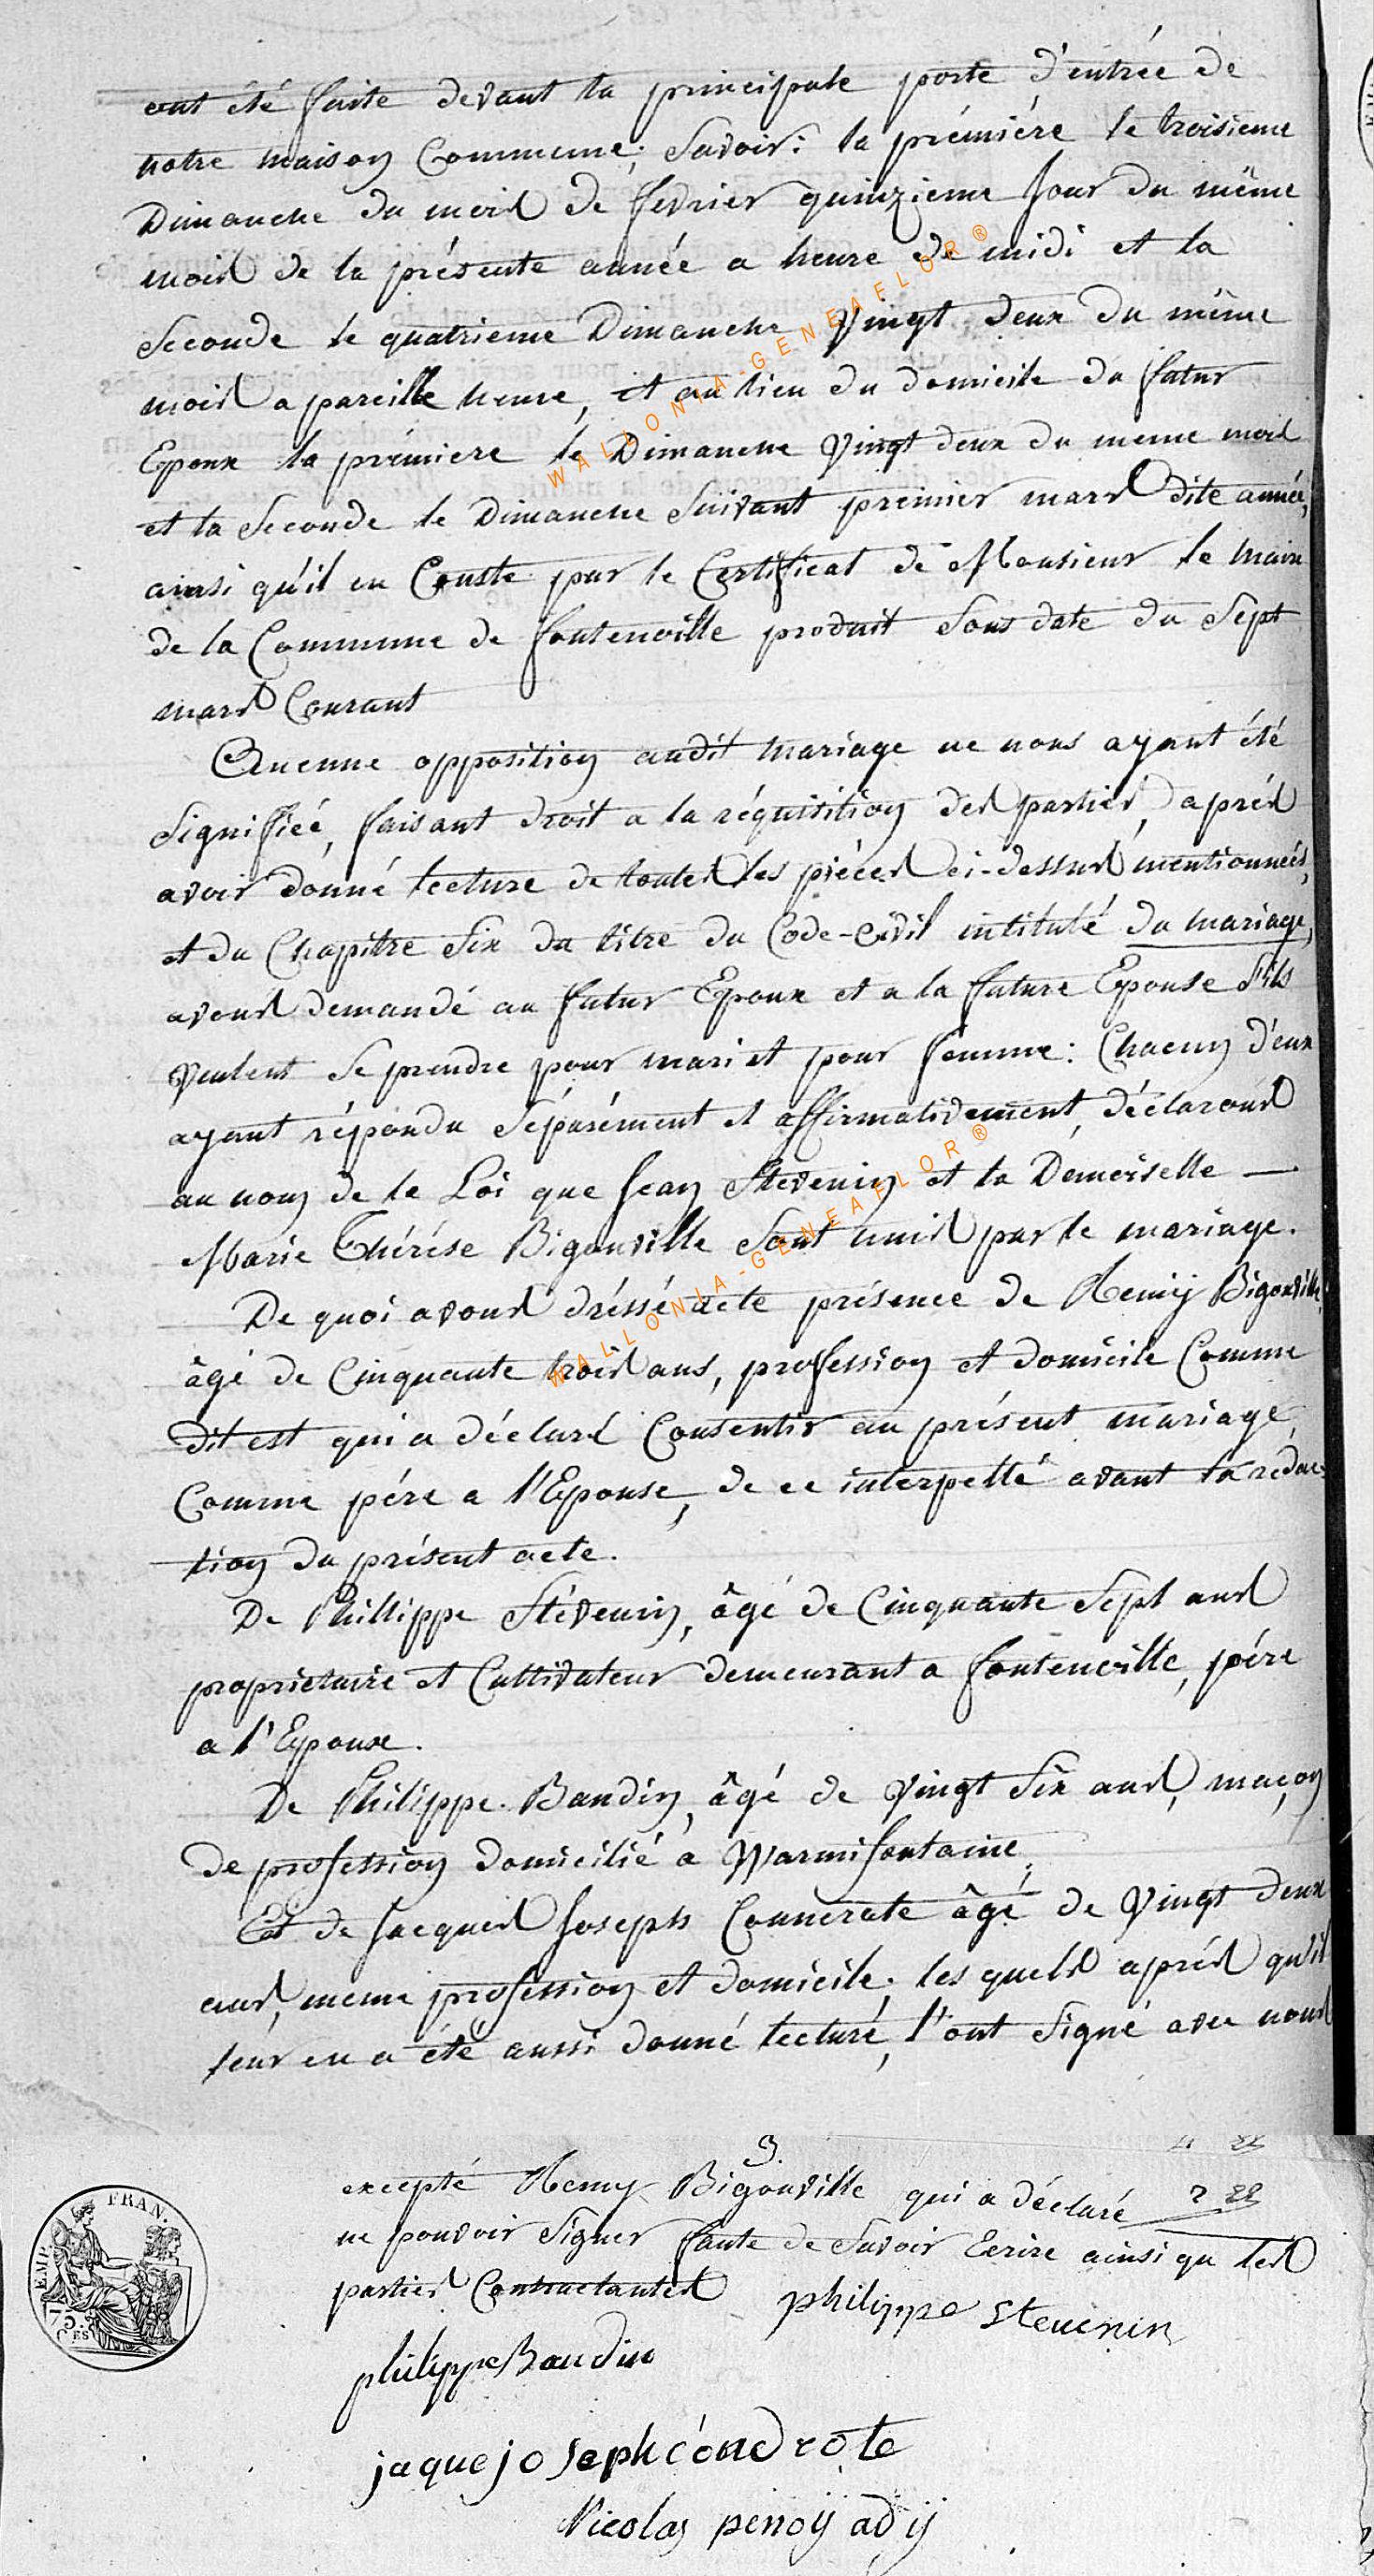 ont été faite devant la principale porte d'entrée de
notre maison Commune; Savoir: la prémiére le troisieme
Dimanche du mois de fevrier quinzieme Jour du même
mois de la présente année a heure de midi et la
Seconde le quatrieme Dimanche Vingt deux du même
mois a pareille heure, et au lieu du domicile du futur
Epoux la prémiere le Dimanche Vingt deux du meme mois
et la Seconde le Dimanche Suivant premier mars dite année,
ainsi qu'il en Conste par le Certificat de Monsieur le Maire
de la Commune de fontenoille produit Sous date du Sept
mars Courant
Aucune opposition audit Mariage ne nous ayant été
Signifiée, faisant droit a la réquisition des parties, aprés
avoir donné lecture de toutes les piéces ci-dessus mentionneés,
et du Chapitre Six du titre du Code-Civil intitulé du mariage,
avons demandé au futur Epoux et a la future Epouse S'ils
Veulent Se prendre pour mari et pour femme: Chacun d'eux
ayant répondu Séparément et affirmativement, déclarons
au nom de la Loi que Jean Stevenin et la Demoiselle —
Marie Thérése Bigonville Sont unis par le mariage.
De quoi avons dréssé acte présence de Remÿ Bigonville,
âgé de Cinquante trois ans, profession et domicile Comme
dit est qui a déclaré Consentir au présent mariage,
Comme pére a l'Epouse, de ce interpellé avant la redac-
tion du présent acte.
De Phillippe Stévenin, âgé de Cinquante Sept ans
proprietaire et Cultivateur demeurant a fontenoille, pére
a l'Epoux.
De Philippe Baudin, âgé de Vingt Six ans, maçon
de profession domicilié a Warmifontaine,
Et de Jacques Joseph Connerate âgé de Vingt deux
ans, meme profession et domicile; les quels aprés qu'il
leur en a été aussi donné lecturé, l'ont Signé avec nous
3.
22
excepté Remy Bigonville qui a déclaré 2 22
ne pouvoir Signer faute de Savoir Ecrire ainsi qu les
parties Contractantes philippe stevenin
EMP. FRAN.
75 C.ES
philippe Baudin
jaque joseph cóndrote
Nicolas penoÿ adÿ
WALLONIA-GENEAFLOR®
WALLONIA-GENEAFLOR®